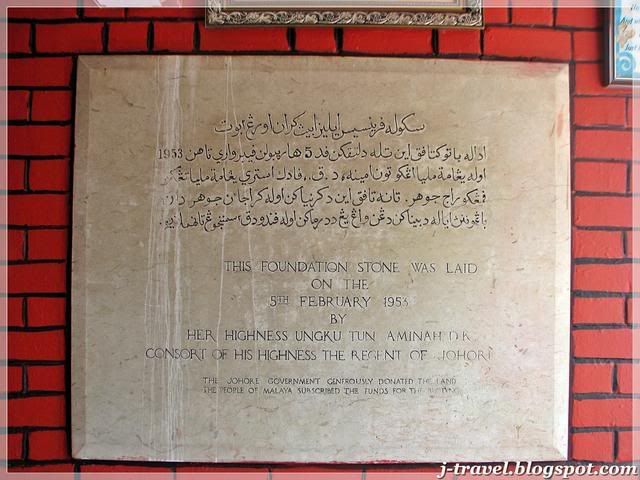 سكوله فرنسيس ايليزابيت كران اورڠ بوت
اداله باتو كتافق اين تله دلتقكن فد 5 هاريبولن فيبرواري تاهن 1953
اوله يڠامة مليا اڠكو تون امينه، د.ق.، فادك استري يڠامة مليا تڠكو
جوهر. تانه تافق اين دكرنياكن اوله كراجأن جوهر دان
THIS FOUNDATION STONE WAS LAID
ON THE
5TH FEBRUARY 1953
BY
HER HIGHNESS UNGKU TUN AMINAH D.K.
CONSORT OF HIS HIGHNESS THE REGENT OF JOHORE
THE JOHORE GOVERNMENT GENEROUSLY DONATED THE LAND
THE PEOPLE OF MALAYA SUBSCRIBED THE FUNDS FOR THE BUILDING
j-travel.blogspot.com